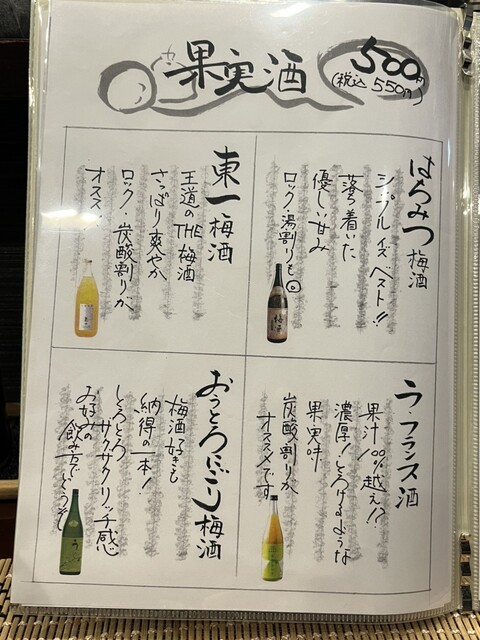 果実酒
500円
(税込550円)
はちみつ梅酒
シンプルイズベスト!!
落ち着いた
優しい甘み
ロック・湯割りも◎
東一梅酒
王道のTHE梅酒
さっぱり爽やか
ロック・炭酸割りが
オススメ!
ラ・フランス酒
果汁100%越え!?
濃厚!とろけるような
果実味
炭酸割りが
オススメです
おうとろにごり梅酒
梅酒好きも
納得の一本!
とろとろ
ザクザクリッチ感
お好みの
飲み方でどうぞ!